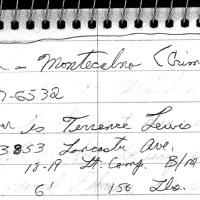 - Montecalvo (Prim
7-6532
is Terrence Lewis
3853 Lancaster Ave.
18-19 Lt. Comp. B/
6' 150 Lbs.